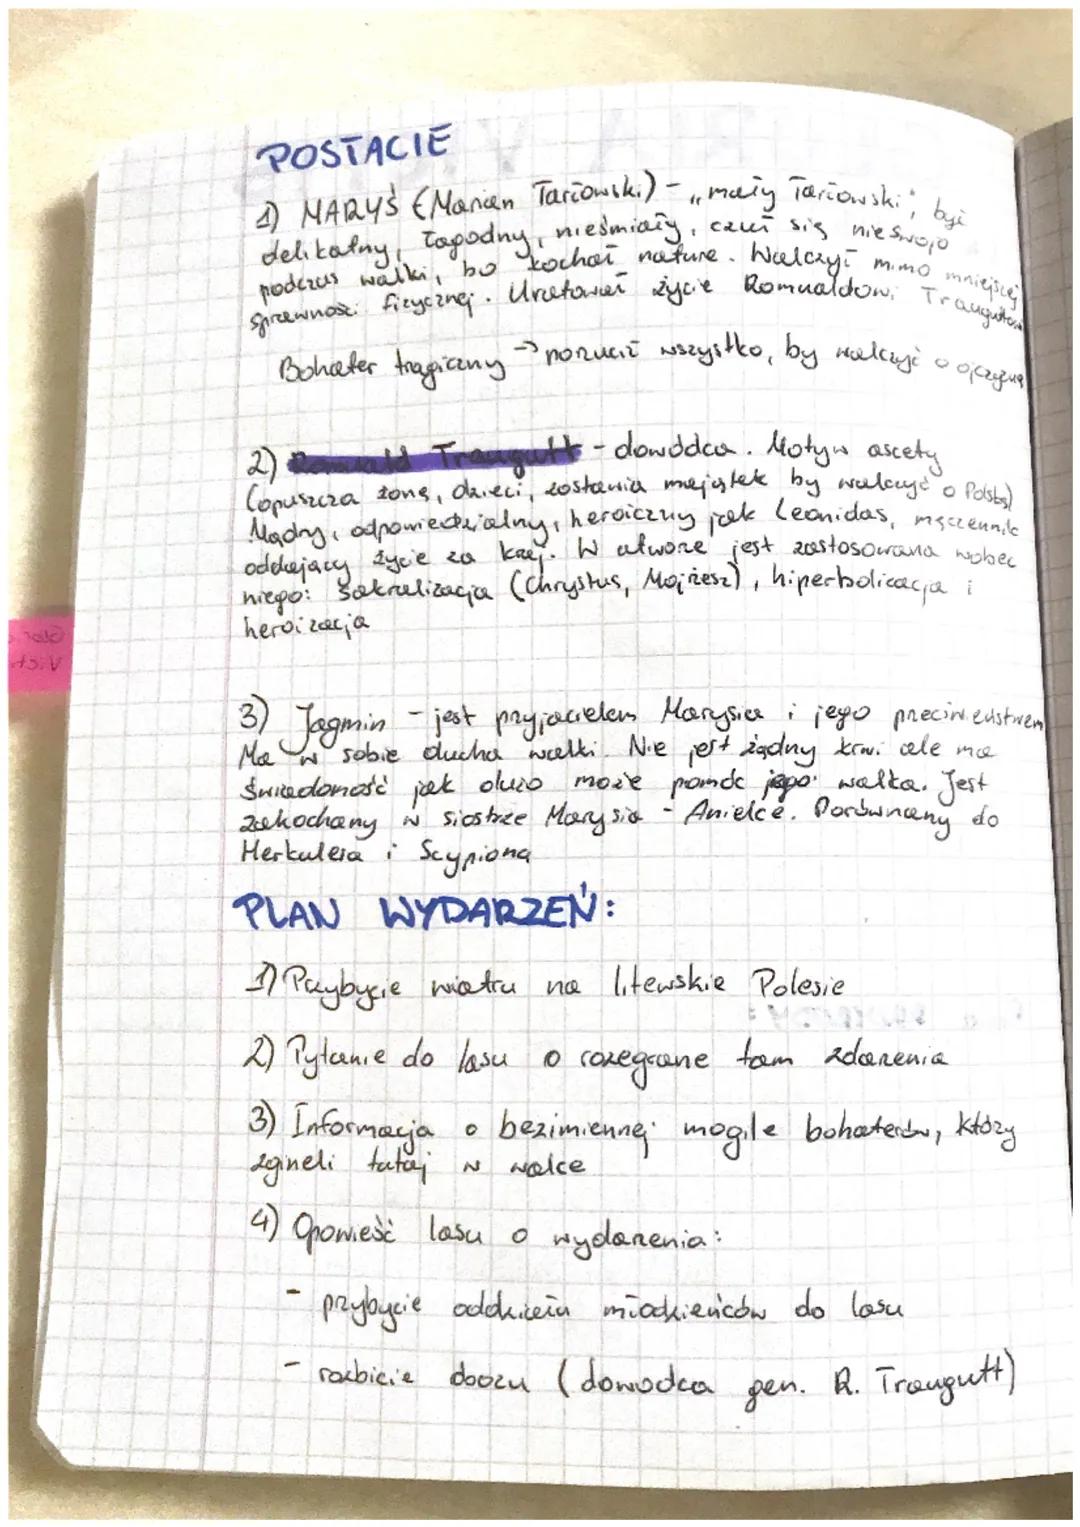 POSTACIE
1) MARYŚ (Marian Tarłowski) - „mały Tarłowski", był
delikatny, łagodny, nieśmiały, czuł się nieswojo
podczas walki, bo kochał naturę. Walczył mimo mniejszej
sprawności fizycznej. Uratował życie Romualdowi Trauguttowi
Bohater tragiczny → porzucił wszystko, by walczyć o ojczyznę
2) Romuald Traugutt - dowódca. Motyw ascety
(opuszcza żonę, dzieci, zostawia majątek by walczyć o Polskę)
Mądry, odpowiedzialny, heroiczny jak Leonidas, męczennik
oddający życie za kraj. W utworze jest zastosowana wobec
niego: sakralizacja (Chrystus, Mojżesz), hiperbolizacja i
heroizacja
3) Jagmin - jest przyjacielem Marysia i jego przeciwieństwem
Ma w sobie ducha walki. Nie jest żądny krwi ale ma
świadomość jak dużo może pomóc jego walka. Jest
zakochany w siostrze Marysia - Anielce. Porównany do
Herkulesa i Scypiona
PLAN WYDARZEŃ:
1) Przybycie wiatru na litewskie Polesie
2) Pytanie do lasu o rozegrane tam zdarzenia
3) Informacja o bezimiennej mogile bohaterów, którzy
zgineli tutaj w walce
4) Opowieść lasu o wydarzenia:
- przybycie oddziału młodzieńców do lasu
- rozbicie obozu (dowodca gen. R. Traugutt)